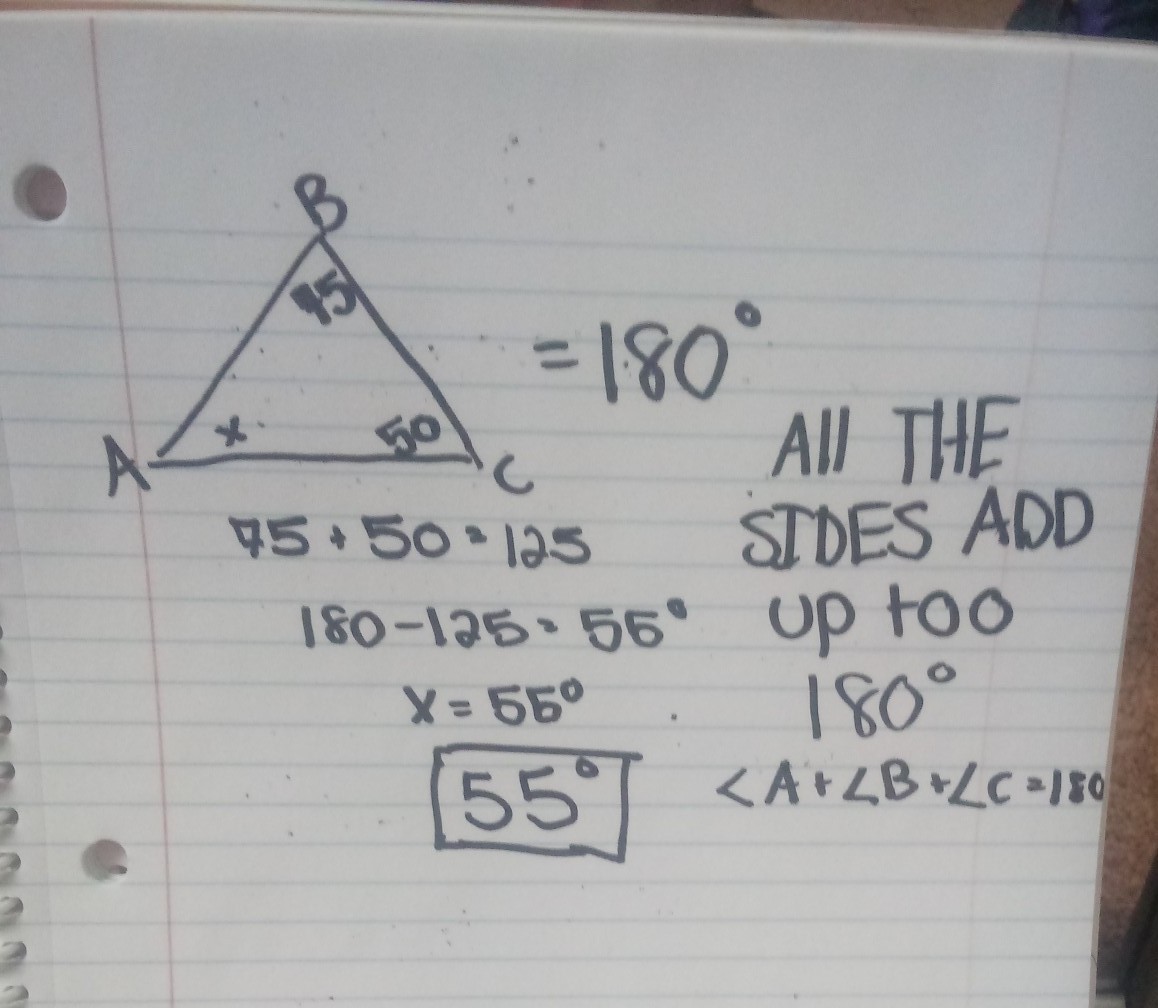 B
75
= 180°
x
50
A
C
All THE
SIDES ADD
up too
180°
75 + 50 = 125
180 - 125 = 55°
x = 55°
55°
<A + ∠B + ∠C = 180